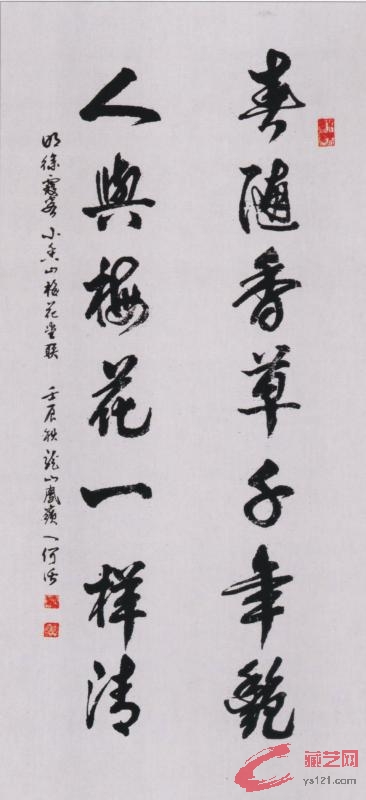 春随香草千年艷
人與梅花一样清
明徐霞客小香山梅花堂联 壬辰秋龍山鳳嶺人何
藏艺网
ys121.com